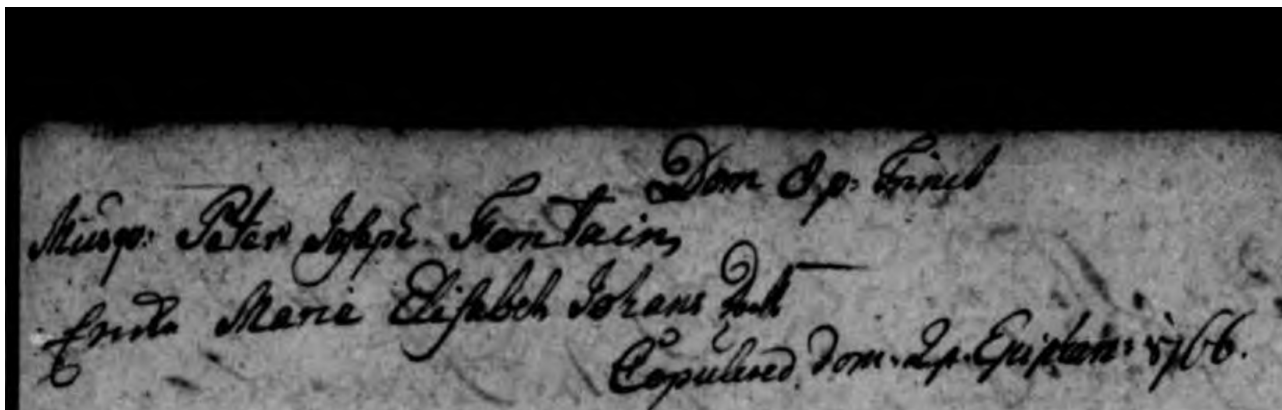 Dom 8 p. Trinit
Musqr: Peter Joseph Fontain,
Enkn Maria Elisabeth Johans dott
Copulered dom. 2 p. Epiphan: 1766.